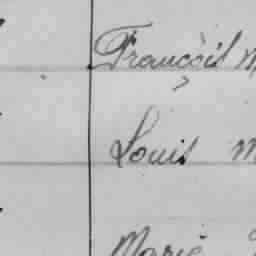 François M
Louis M
Marie